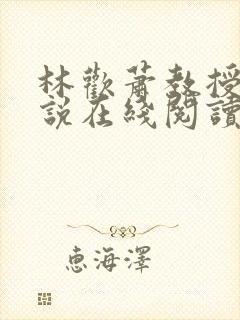 林歡蕭教授
說在綫閱讀
惠海澤